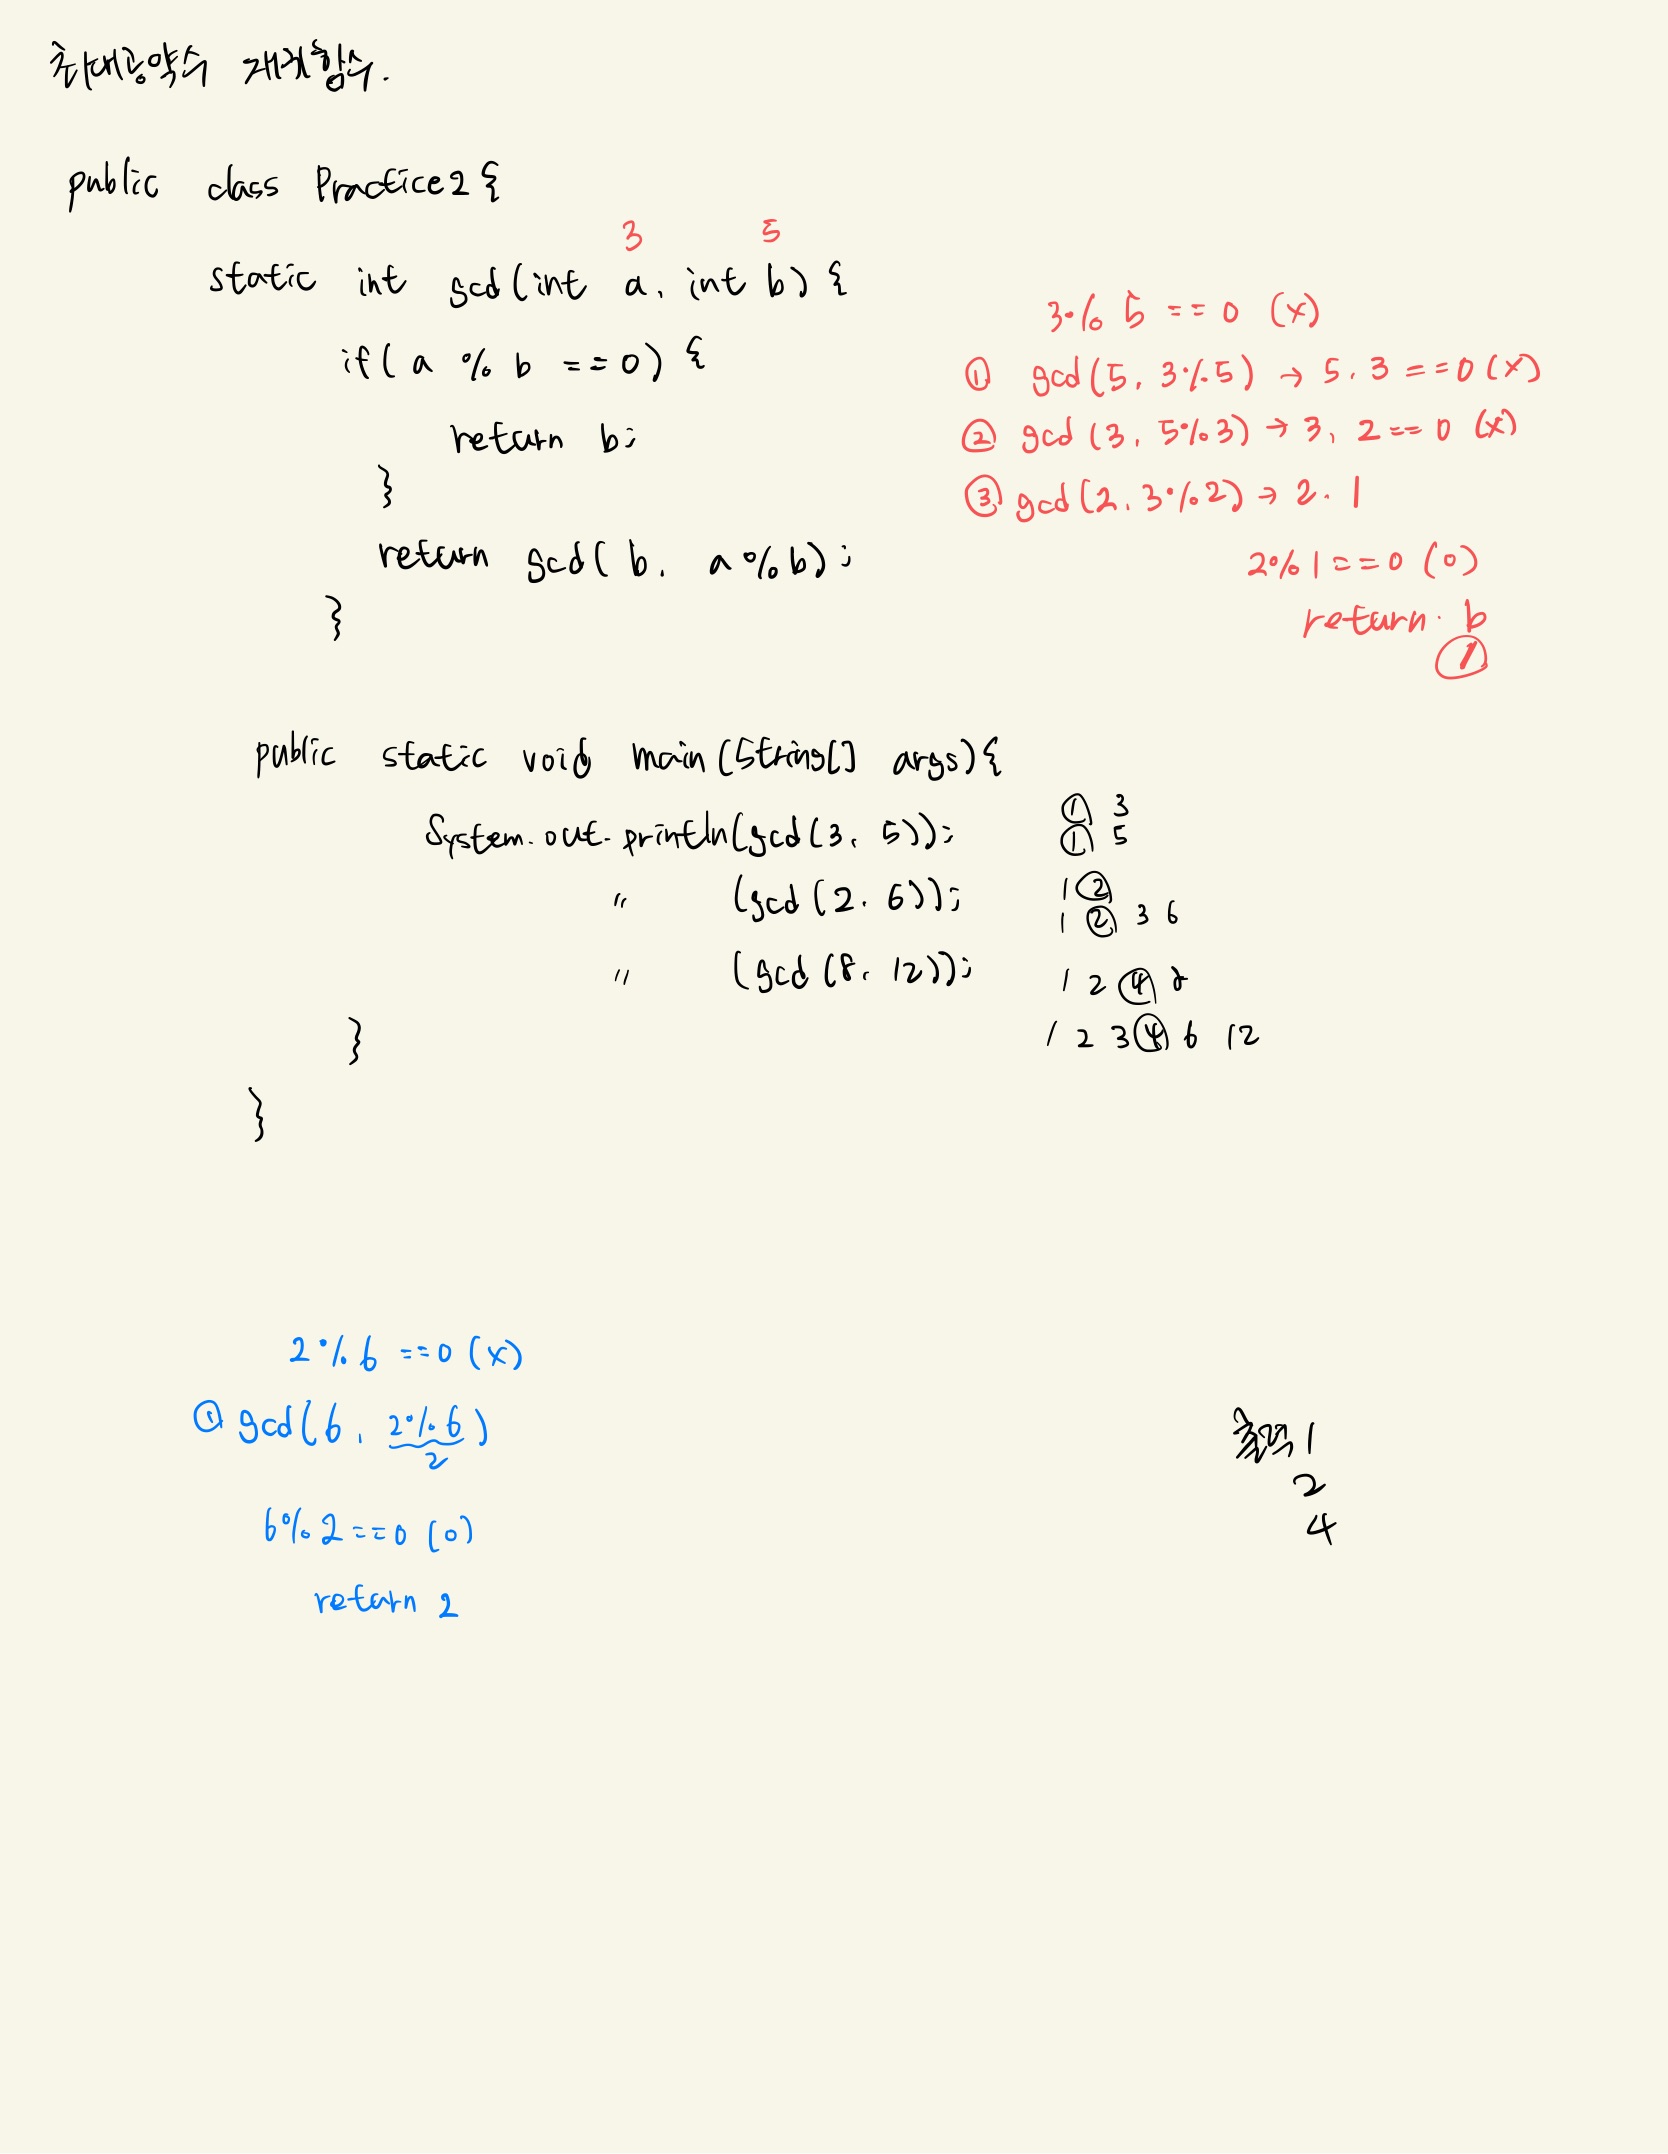 최대공약수 재귀함수.
public class Practice2{
3 5
static int gcd(int a, int b) {
if( a % b ==0) {
return b;
}
return gcd( b, a%b);
}
3% 5 == 0 (x)
① gcd(5, 3%5) → 5, 3 ==0 (x)
② gcd (3, 5%3) → 3, 2 == 0 (x)
③ gcd(2, 3%2) → 2, 1
2% 1 == 0 (o)
return b
①
public static void main (String[] args){
System.out.println(gcd(3, 5));
〃 (gcd(2, 6));
〃 (gcd(8, 12));
}
}
① 3
① 5
1 ②
1 ② 3 6
1 2 ④ 8
1 2 3 ④ 6 12
2 % 6 ==0 (x)
① gcd(6, 2%6)
2
6% 2 ==0 (o)
return 2
출력 1
2
4